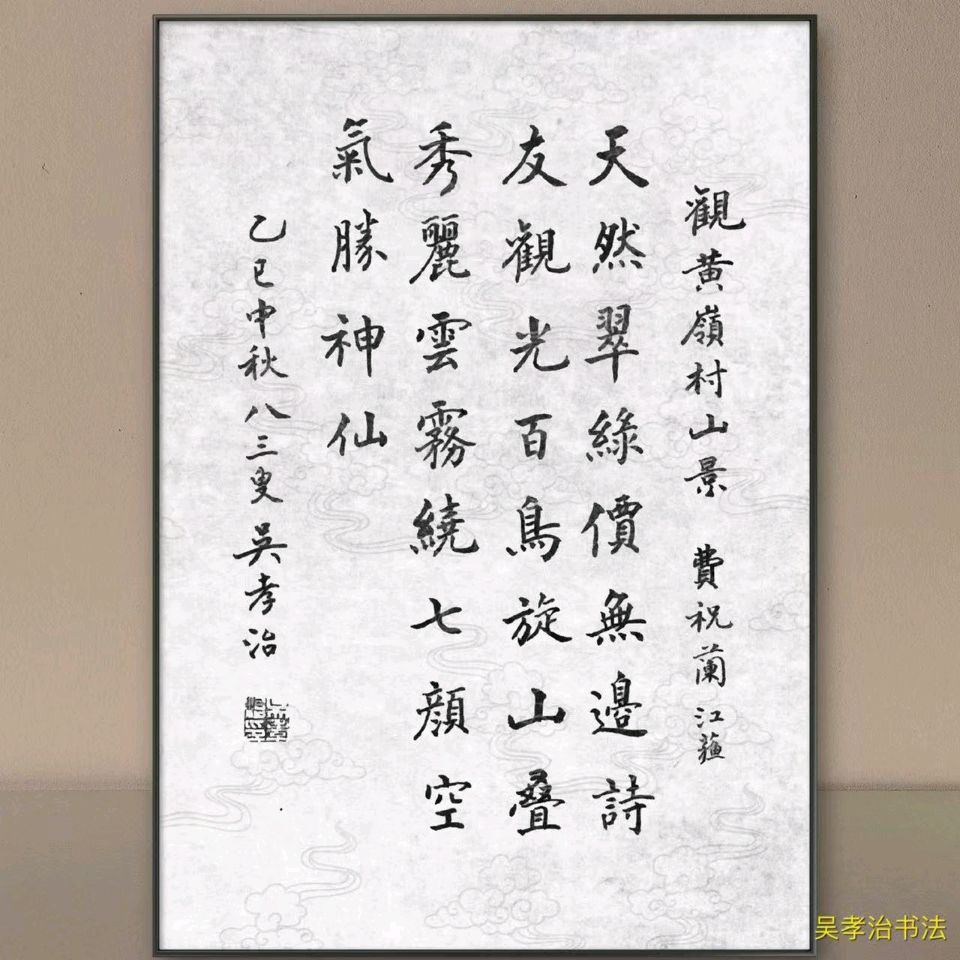 觀黃嶺村山景 費祝蘭 江蘓
天然翠綠價無邊詩
友觀光百鳥旋山叠
秀麗雲霧繞七顔空
氣勝神仙
乙巳中秋八三叟吴孝治
吴孝治书法